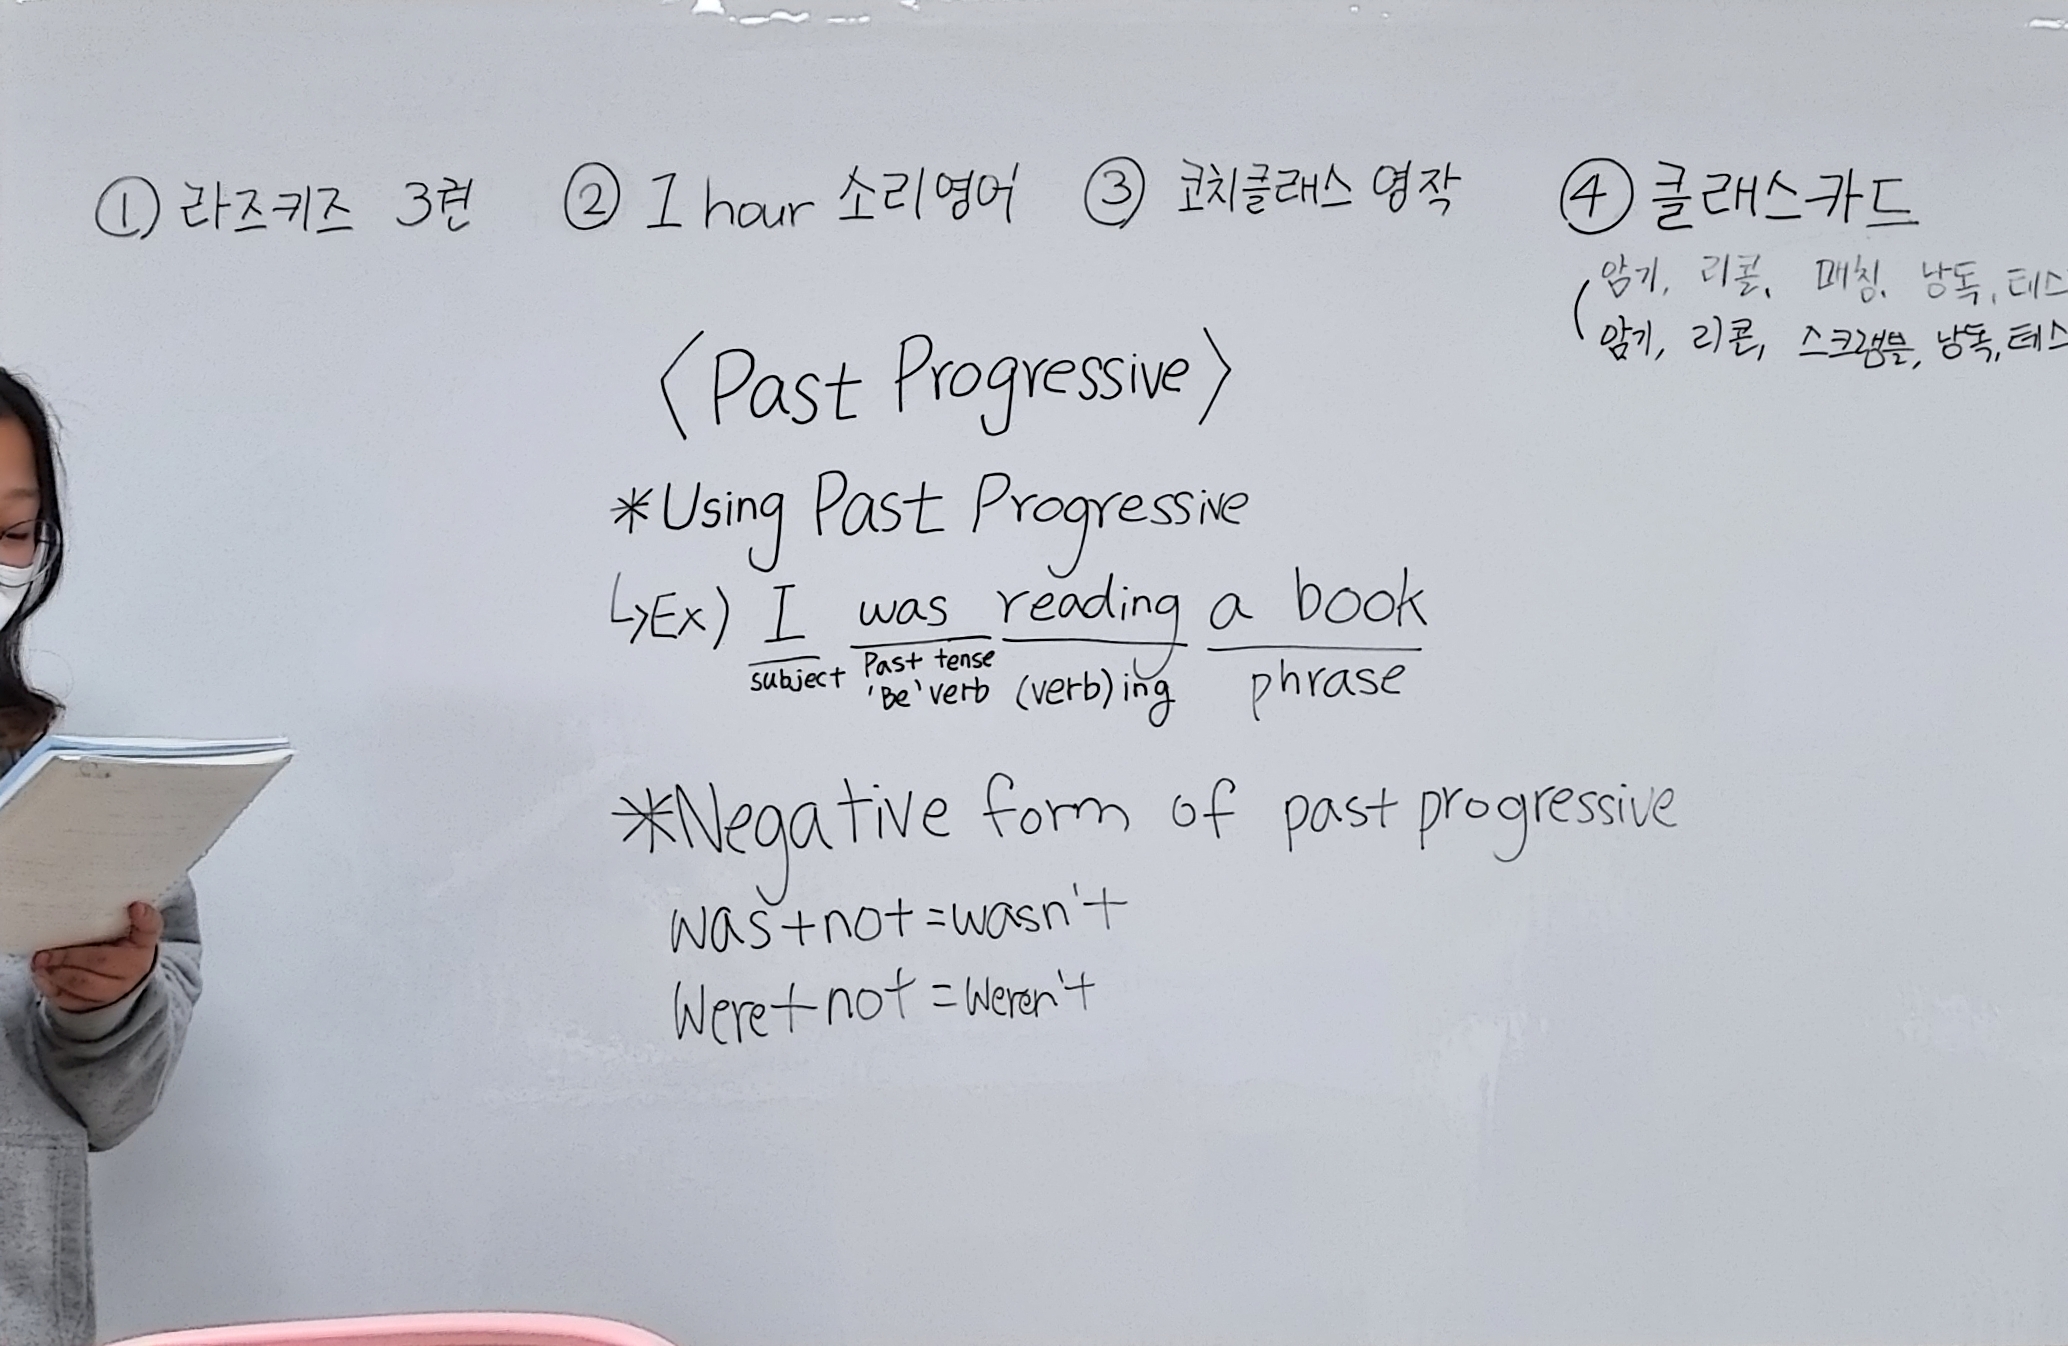 ① 라즈키즈 3권 ② 1 hour 소리영어 ③ 코치클래스 영작 ④ 클래스카드
(암기, 리콜, 매칭, 낭독, 테스
암기, 리콜, 스크램블, 낭독, 테스
<Past Progressive>
*Using Past Progressive
↳Ex) I was reading a book
subject Past tense 'Be' verb (verb)ing phrase
*Negative form of past progressive
was+not=wasn't
Were+not=Weren't